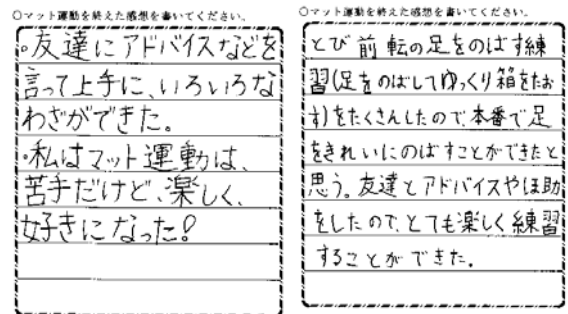 ○マット運動を終えた感想を書いてください。
・友達にアドバイスなどを
言って上手に、いろいろな
わざができた。
・私はマット運動は、
苦手だけど、楽しく、
好きになった!
○マット運動を終えた感想を書いてください。
とび前転の足をのばす練
習(足をのばしてゆっくり箱をたお
す)をたくさんしたので本番で足
をきれいにのばすことができたと
思う。友達とアドバイスやほ助
をしたので、とても楽しく練習
することができた。